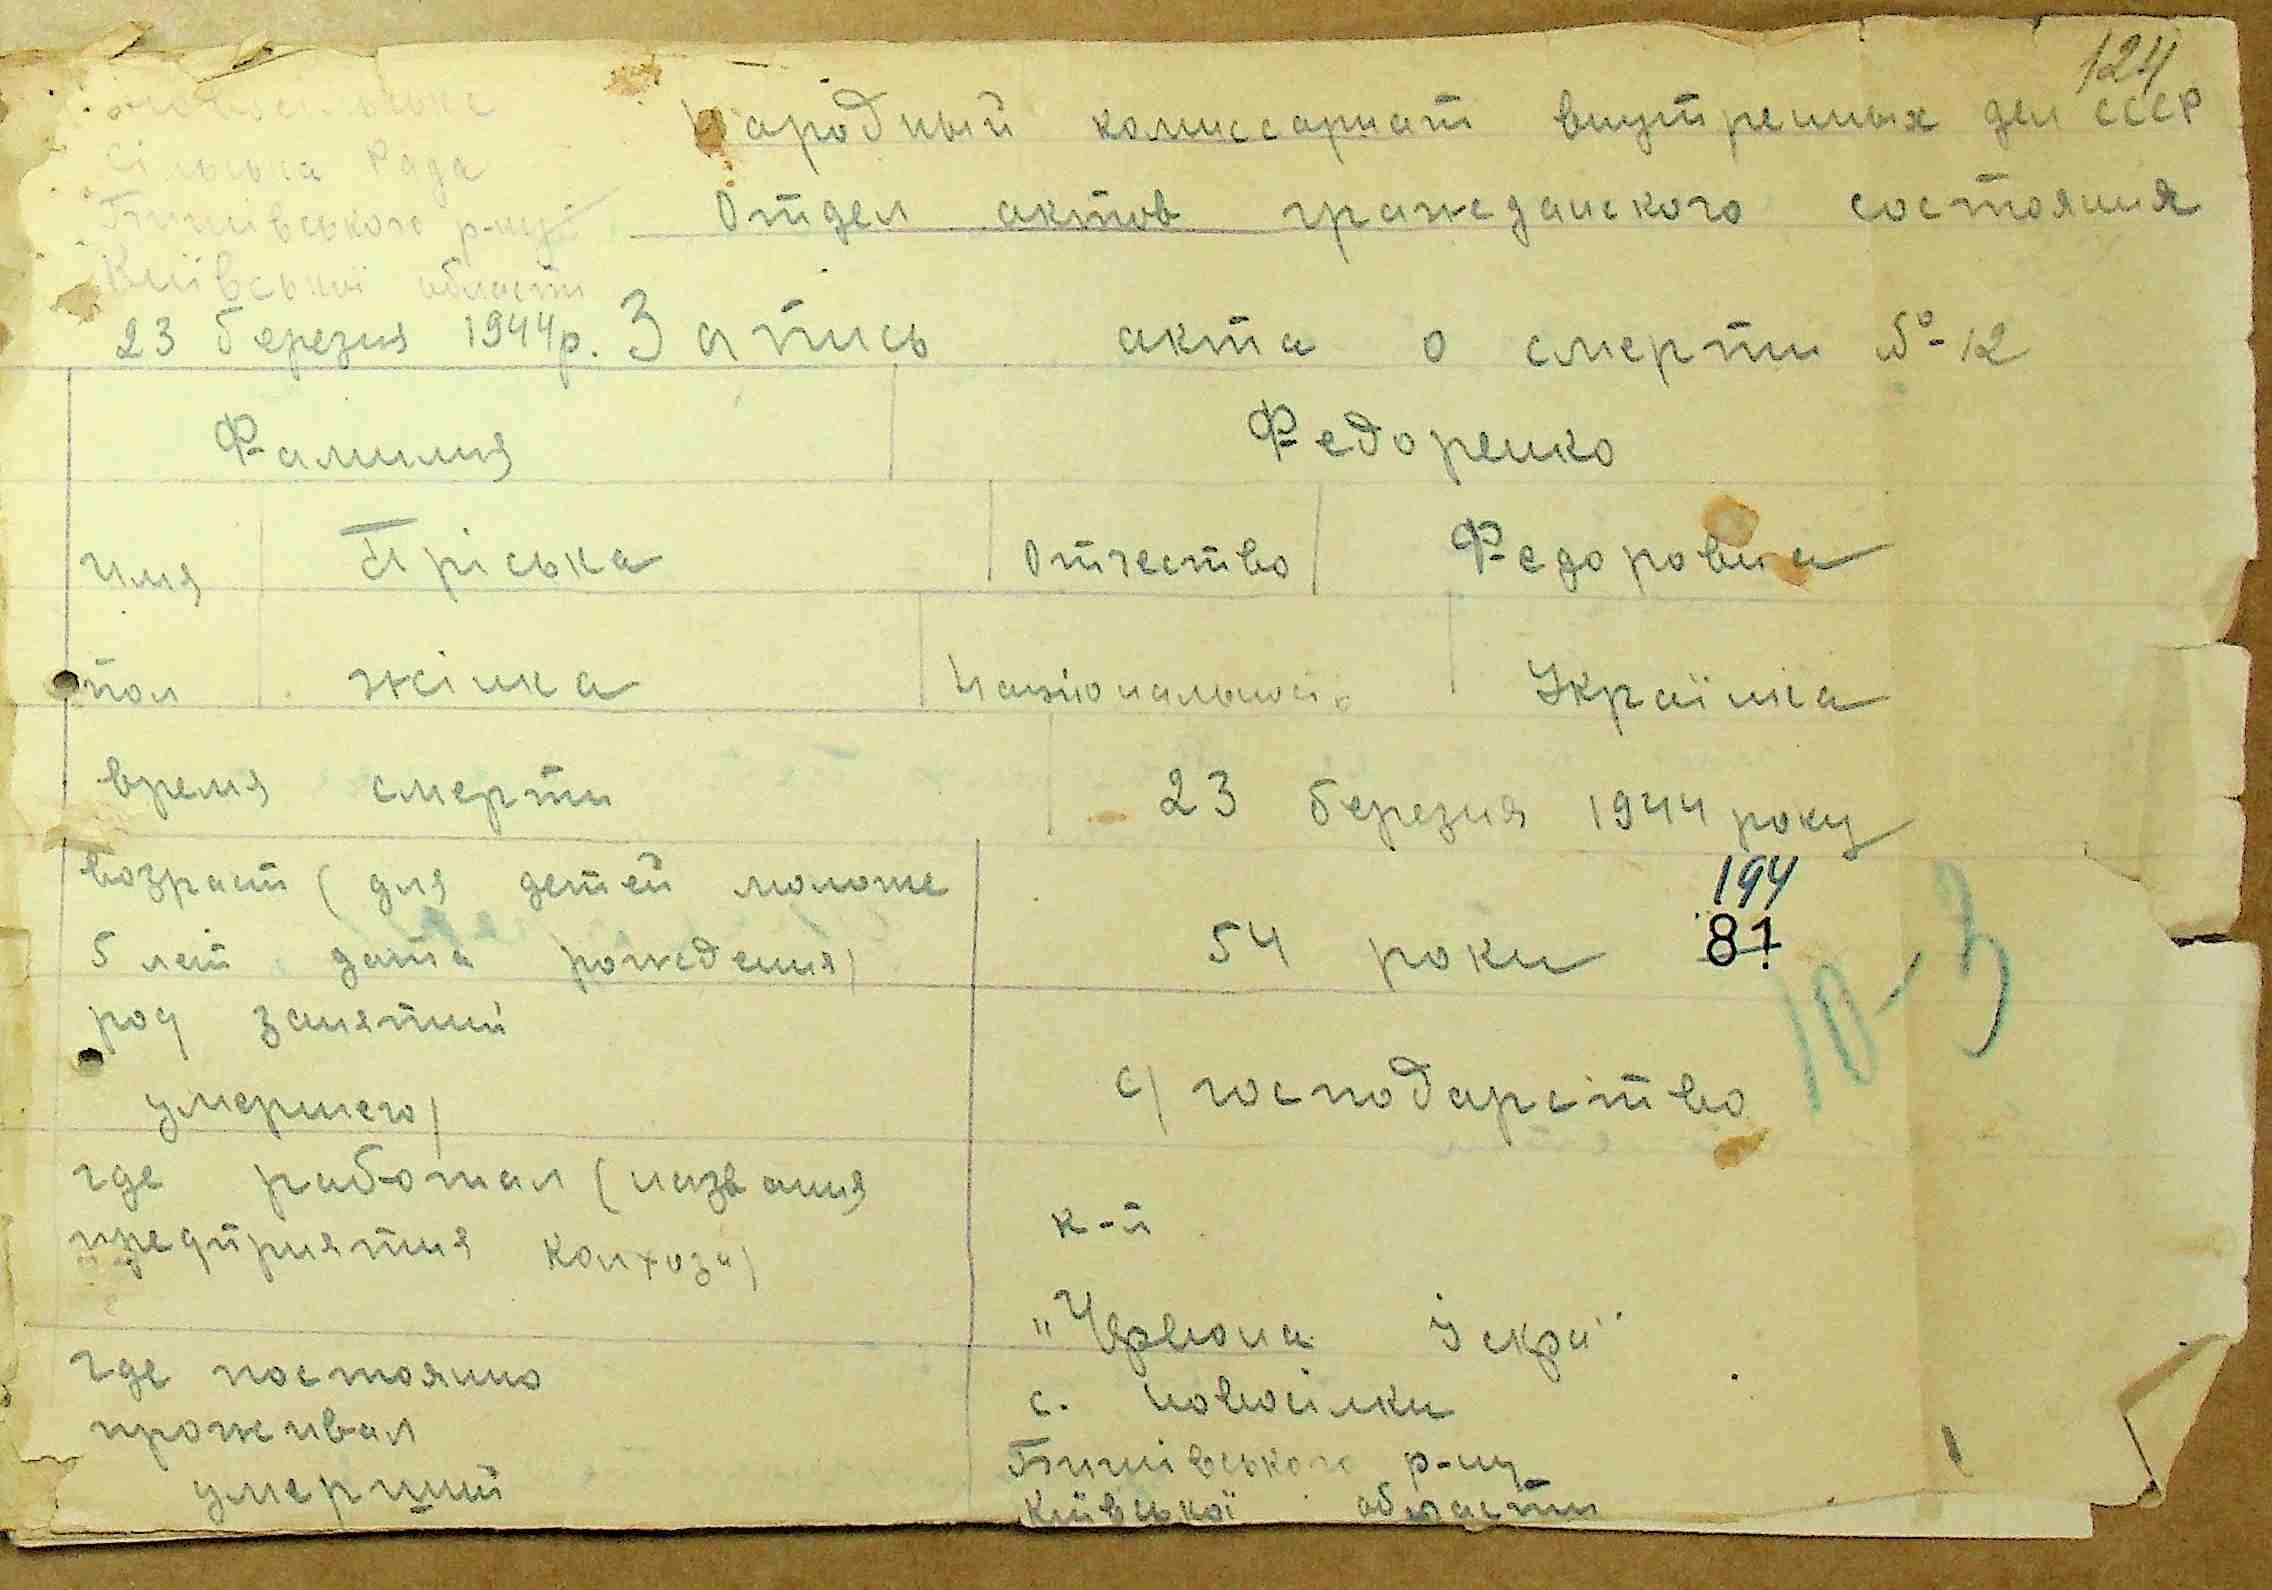 124
Новосільська
Сільська Рада
Бишівського р-ну
Київської області
23 березня 1944 р.
Народный комиссариат внутренных дел СССР
Отдел актов гражеданского состояния
Запись акта о смерти № 12
Фамилия Федоренко
Имя Пріська Отчество Федоровна
пол жінка Національність Українка
время смерти 23 березня 1944 року
возраст (для детей моложе
5 лет дата рождения) 54 роки
194
81
10-3
род занятий
умершего) с/господарство
где работал (названия
предприятия колхоза) к-п
"Червона Іскра"
где постоянно с. Новосілки
проживал Бишівського р-ну
умерший Київської области